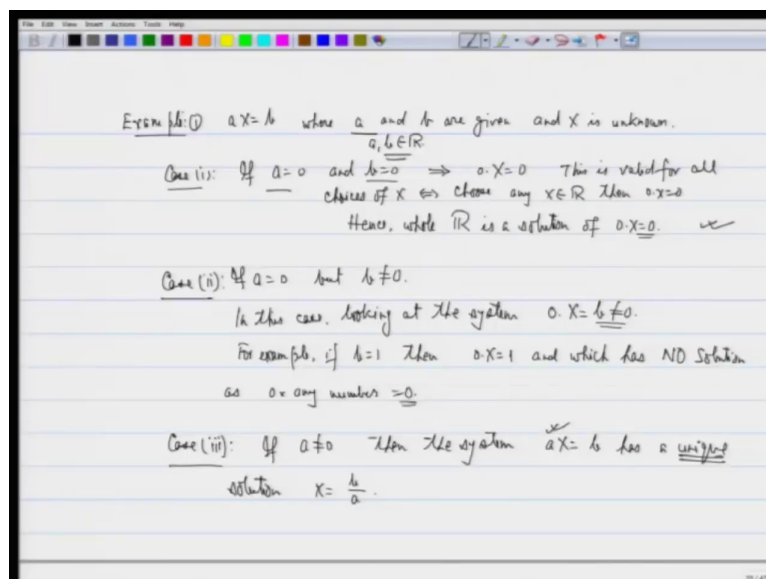 File Edit View Insert Actions Tools Help
Example: ① ax=b where a and b are given and x is unknown.
a, b ∈ ℝ.
Case (i): If a=0 and b=0 ⇒ 0·x=0 This is valid for all
choices of x ⇔ choose any x∈ℝ then 0·x=0
Hence, whole ℝ is a solution of 0·x=0.
Case (ii): If a=0 but b≠0.
In this case, looking at the system 0·x=b≠0.
For example, if b=1 then 0·x=1 and which has NO solution
as 0× any number =0.
Case (iii): If a≠0 then the system ax=b has a unique
solution x= b/a.